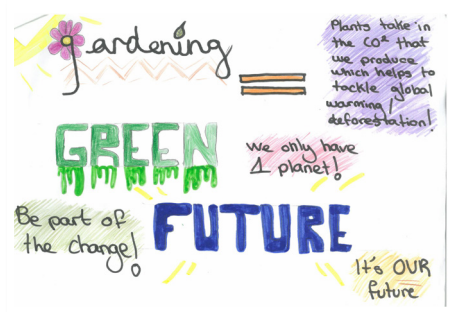 gardening
=
Plants take in
the CO² that
we produce
which helps to
tackle global
warming/
deforestation!
GREEN
we only have
1 planet!
Be part of
the change!
FUTURE
It's OUR
future